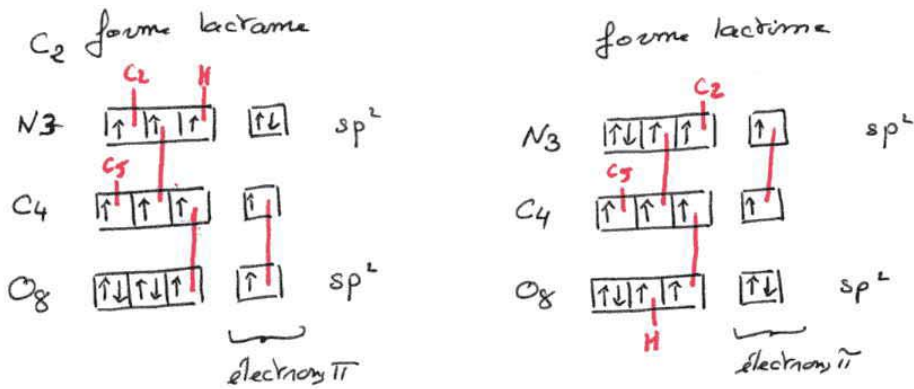 C2 forme lactame
C2 H
N3 ↑ ↑ ↑ ↑↓ sp²
C5
C4 ↑ ↑ ↑ ↑
O8 ↑↓ ↑↓ ↑ ↑ sp²
électrons π
forme lactime
C2
N3 ↑↓ ↑ ↑ ↑ sp²
C5
C4 ↑ ↑ ↑ ↑
O8 ↑↓ ↑ ↑ ↑↓ sp²
H
électrons π